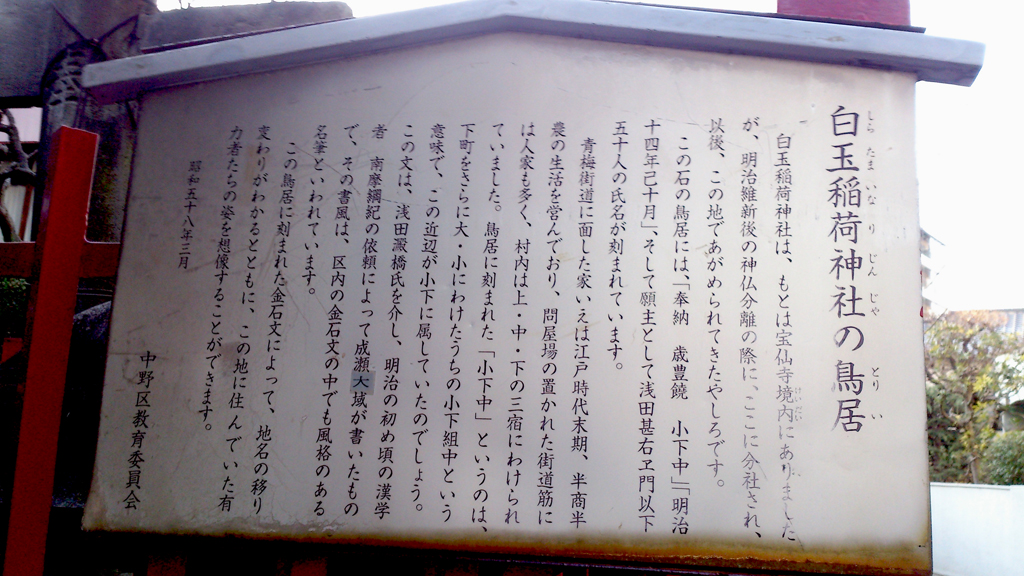 白玉稲荷神社の鳥居
しらたまいなりじんじゃ とりい
白玉稲荷神社は、もとは宝仙寺境内にありました
けいだい
が、明治維新後の神仏分離の際に、ここに分社され、
以後、この地であがめられてきたやしろです。
この石の鳥居には、「奉納 歳豊饒 小下中」「明治
十四年己十月」、そして願主として浅田甚右ヱ門以下
五十人の氏名が刻まれています。
青梅街道に面した家いえは江戸時代末期、半商半
農の生活を営んでおり、問屋場の置かれた街道筋に
は人家も多く、村内は上・中・下の三宿にわけられ
ていました。鳥居に刻まれた「小下中」というのは、
下町をさらに大・小にわけたうちの小下組中という
意味で、この近辺が小下に属していたのでしょう。
この文は、浅田澱橋氏を介し、明治の初め頃の漢学
者 南摩綱紀の依頼によって成瀬大域が書いたもの
で、その書風は、区内の金石文の中でも風格のある
名筆といわれています。
この鳥居に刻まれた金石文によって、地名の移り
変わりがわかるとともに、この地に住んでいた有
力者たちの姿を想像することができます。
昭和五十八年三月
中野区教育委員会